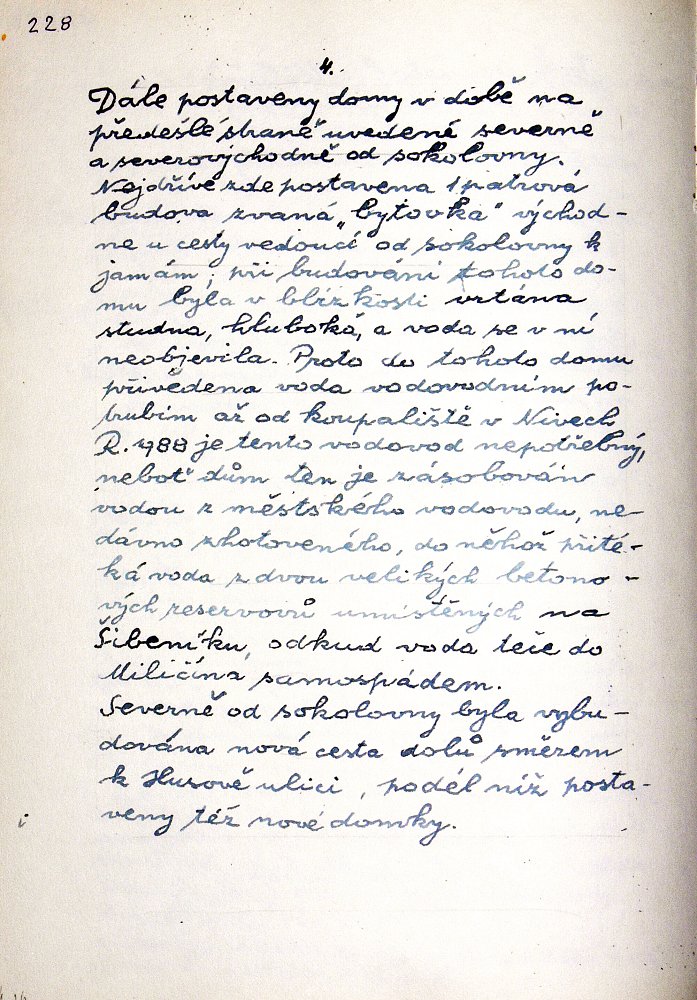 228
4.
Dále postaveny domy v době na
předešlé straně uvedené severně
a severovýchodně od sokolovny.
Nejdříve zde postavena 1 patrová
budova zvaná „bytovka" východ-
ně u cesty vedoucí od sokolovny k
jamám; při budování tohoto do-
mu byla v blízkosti vrtána
studna, hluboká, a voda se v ní
neobjevila. Proto do tohoto domu
přivedena voda vodovodním po-
trubím až od koupaliště v Nivech
R. 1988 je tento vodovod nepotřebný,
neboť dům ten je zásobován
vodou z městského vodovodu, ne-
dávno zhotoveného, do něhož přité-
ká voda z dvou velikých betono-
vých reservovů umístěných na
Šibeníku, odkud voda teče do
Miličína samospádem.
Severně od sokolovny byla vybu-
dována nová cesta dolů směrem
k Husově ulici, podél níž posta-
veny též nové domky.